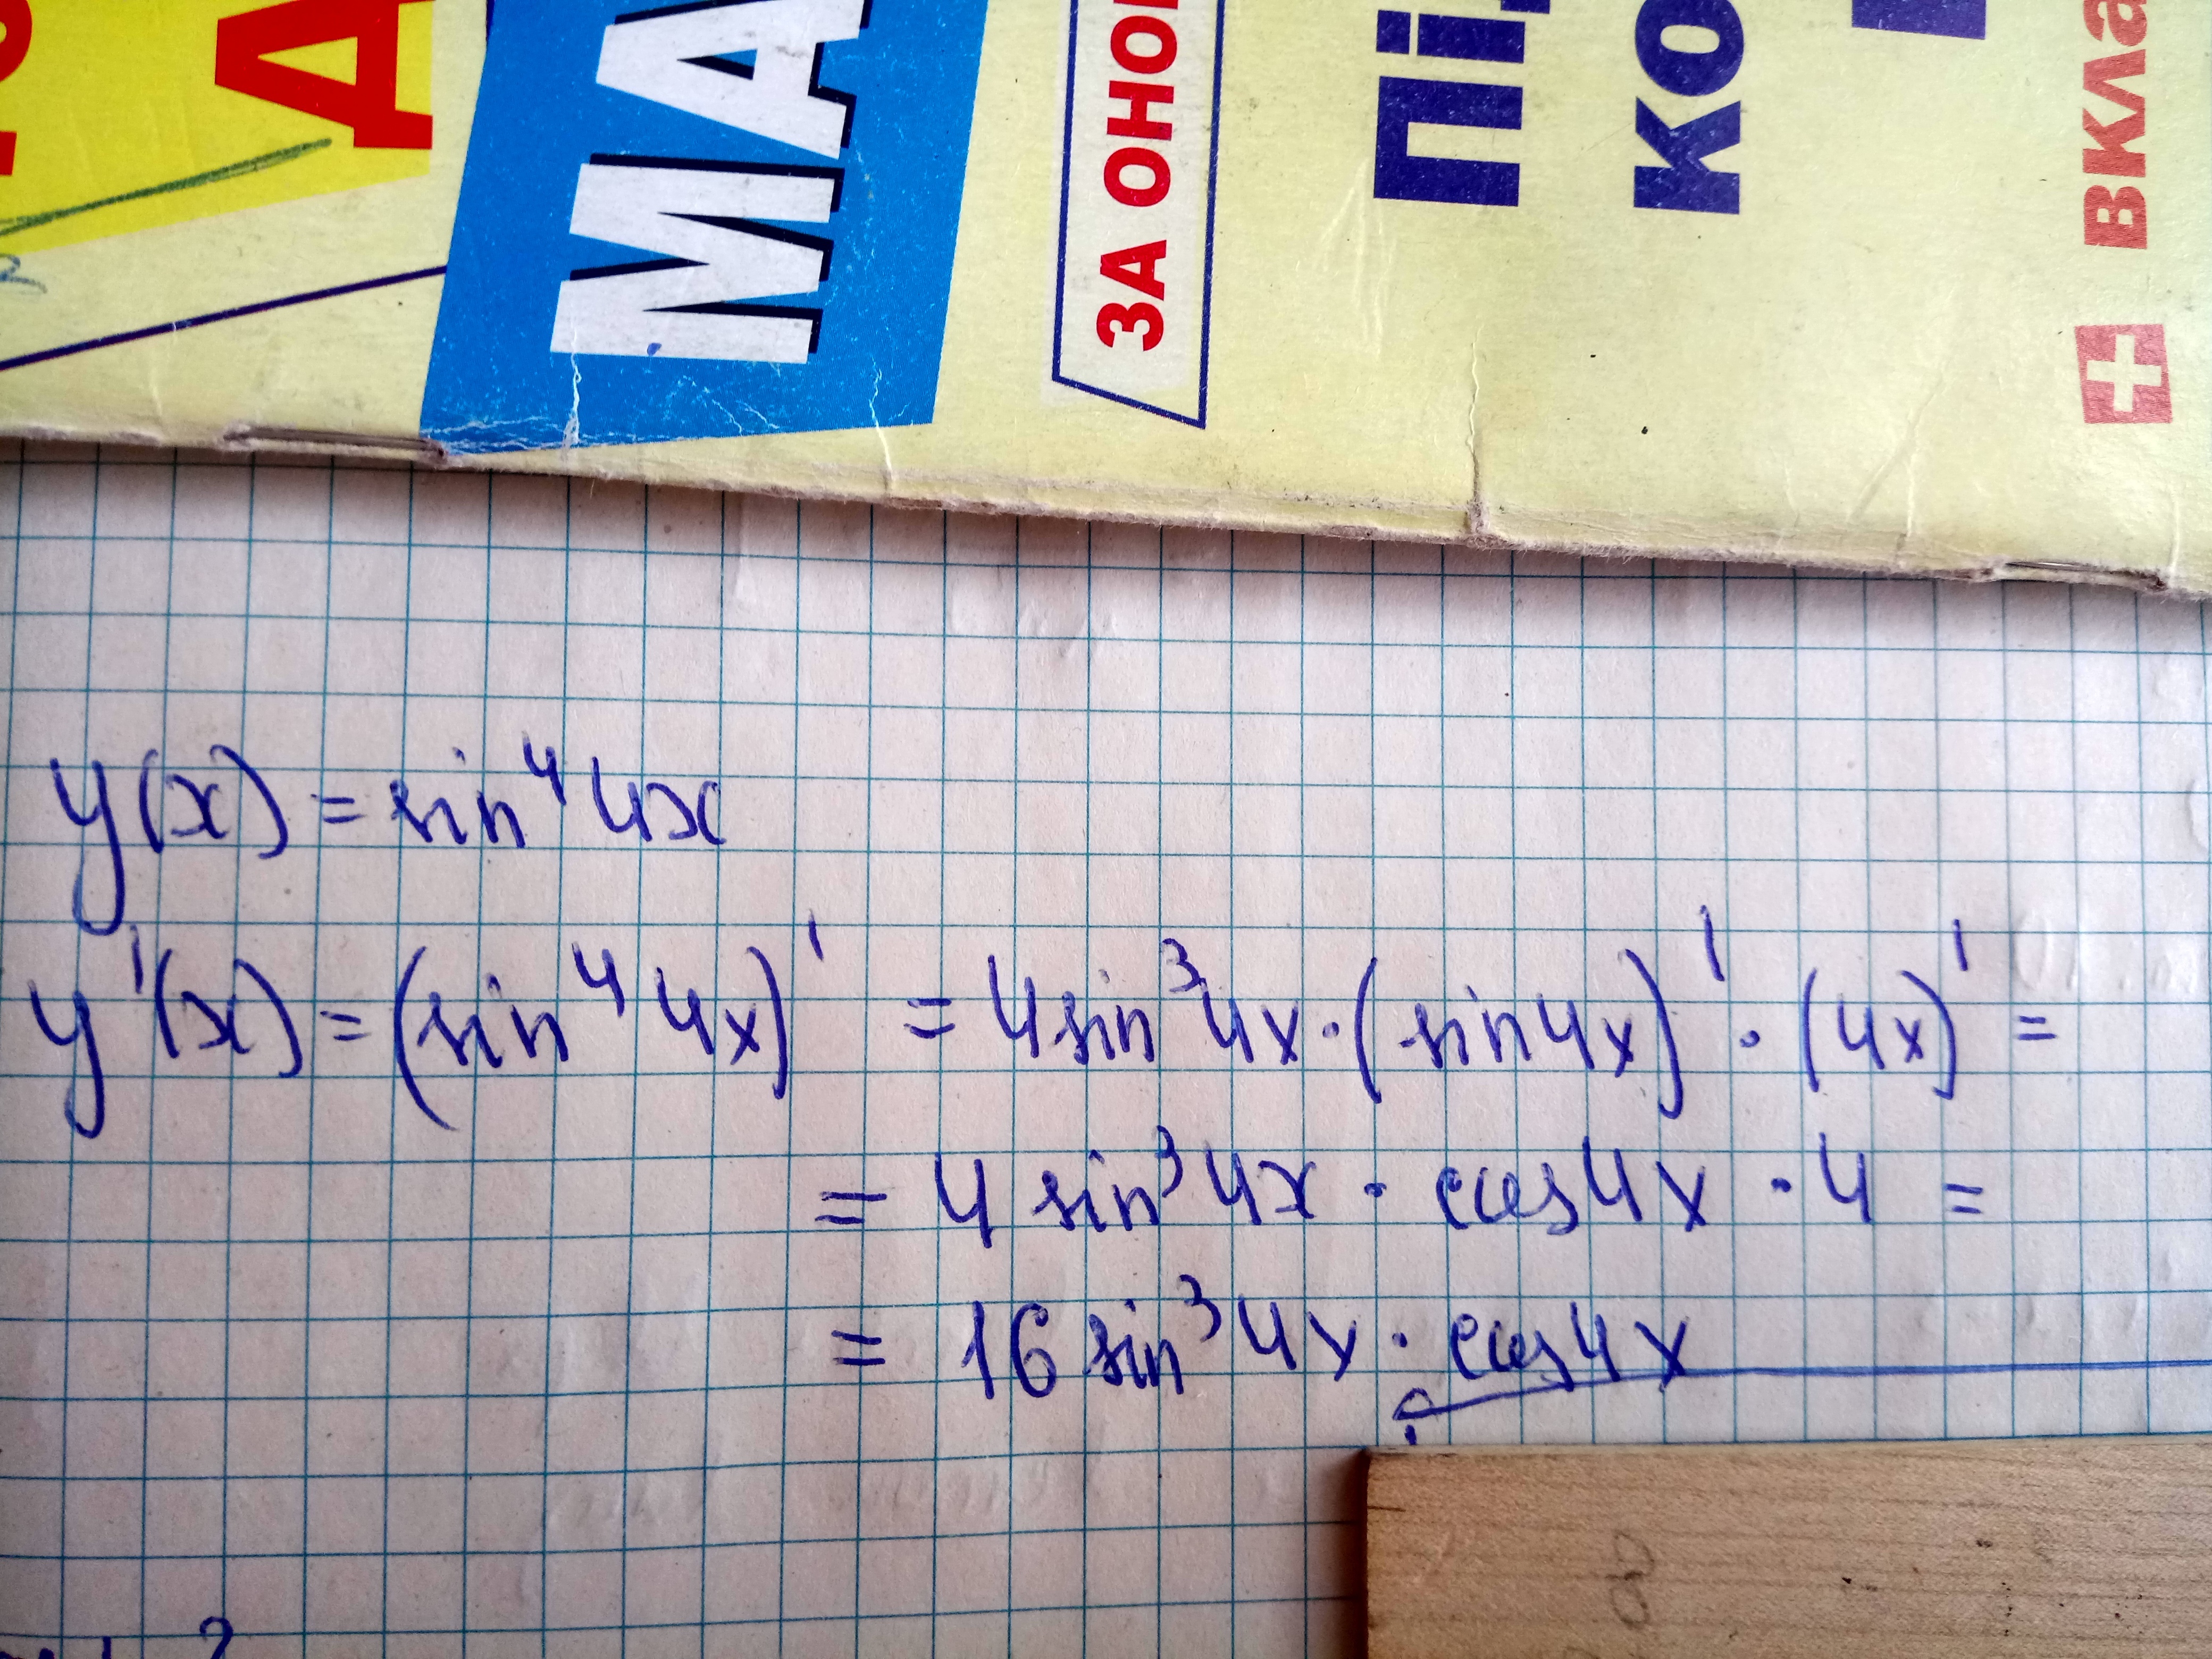 МА
ЗА ОНО
Пі
ко
вкла
y(x) = sin⁴ 4x
y'(x) = (sin⁴ 4x)' = 4sin³4x · (sin4x)' · (4x)' =
= 4 sin³ 4x · cos4x · 4 =
= 16 sin³ 4x · cos4x